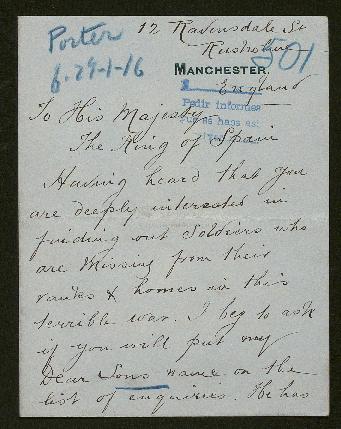 Porter
6.29-1-16
12 Ravensdale St
Rusholme
501
MANCHESTER.
England
Pedir informes
To His Majesty
The King of Spain
Having heard that you
are deeply interested in
finding out Soldiers who
are Missing from their
ranks & homes in this
terrible war. I beg to ask
if you will put my
Dear Sons name on the
list of enquiries. He has